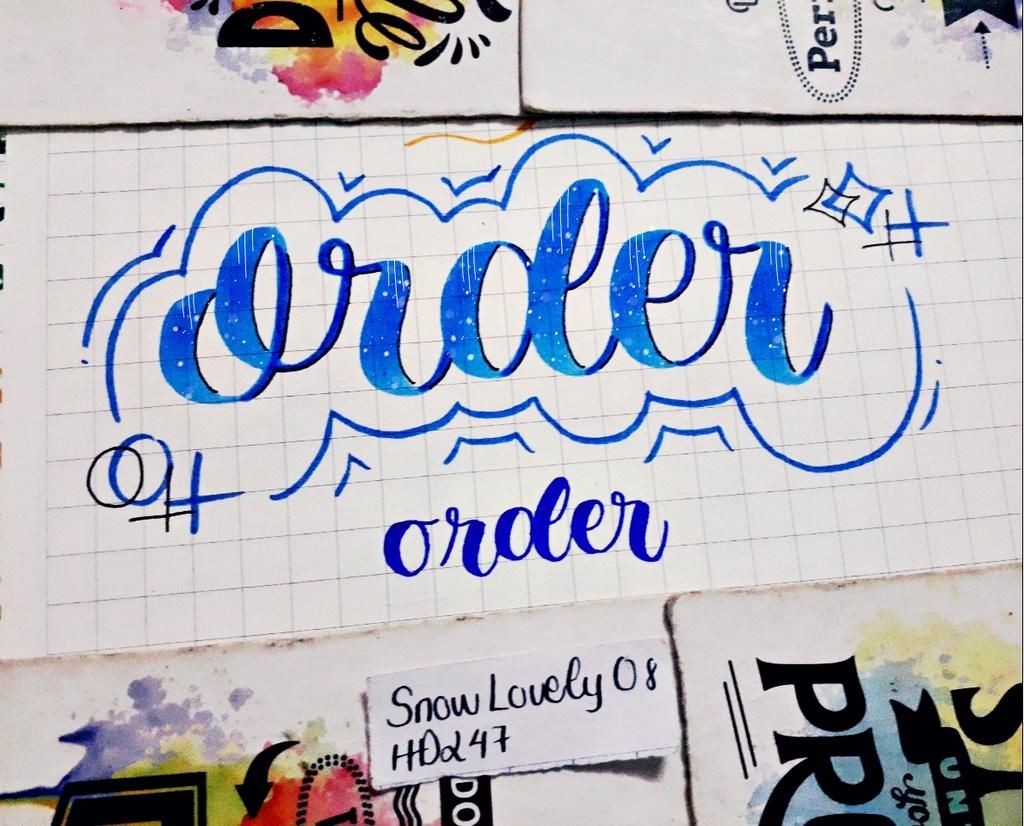 Per
order
order
Snow Lovely 08
HDα247
PRO
UN
DO